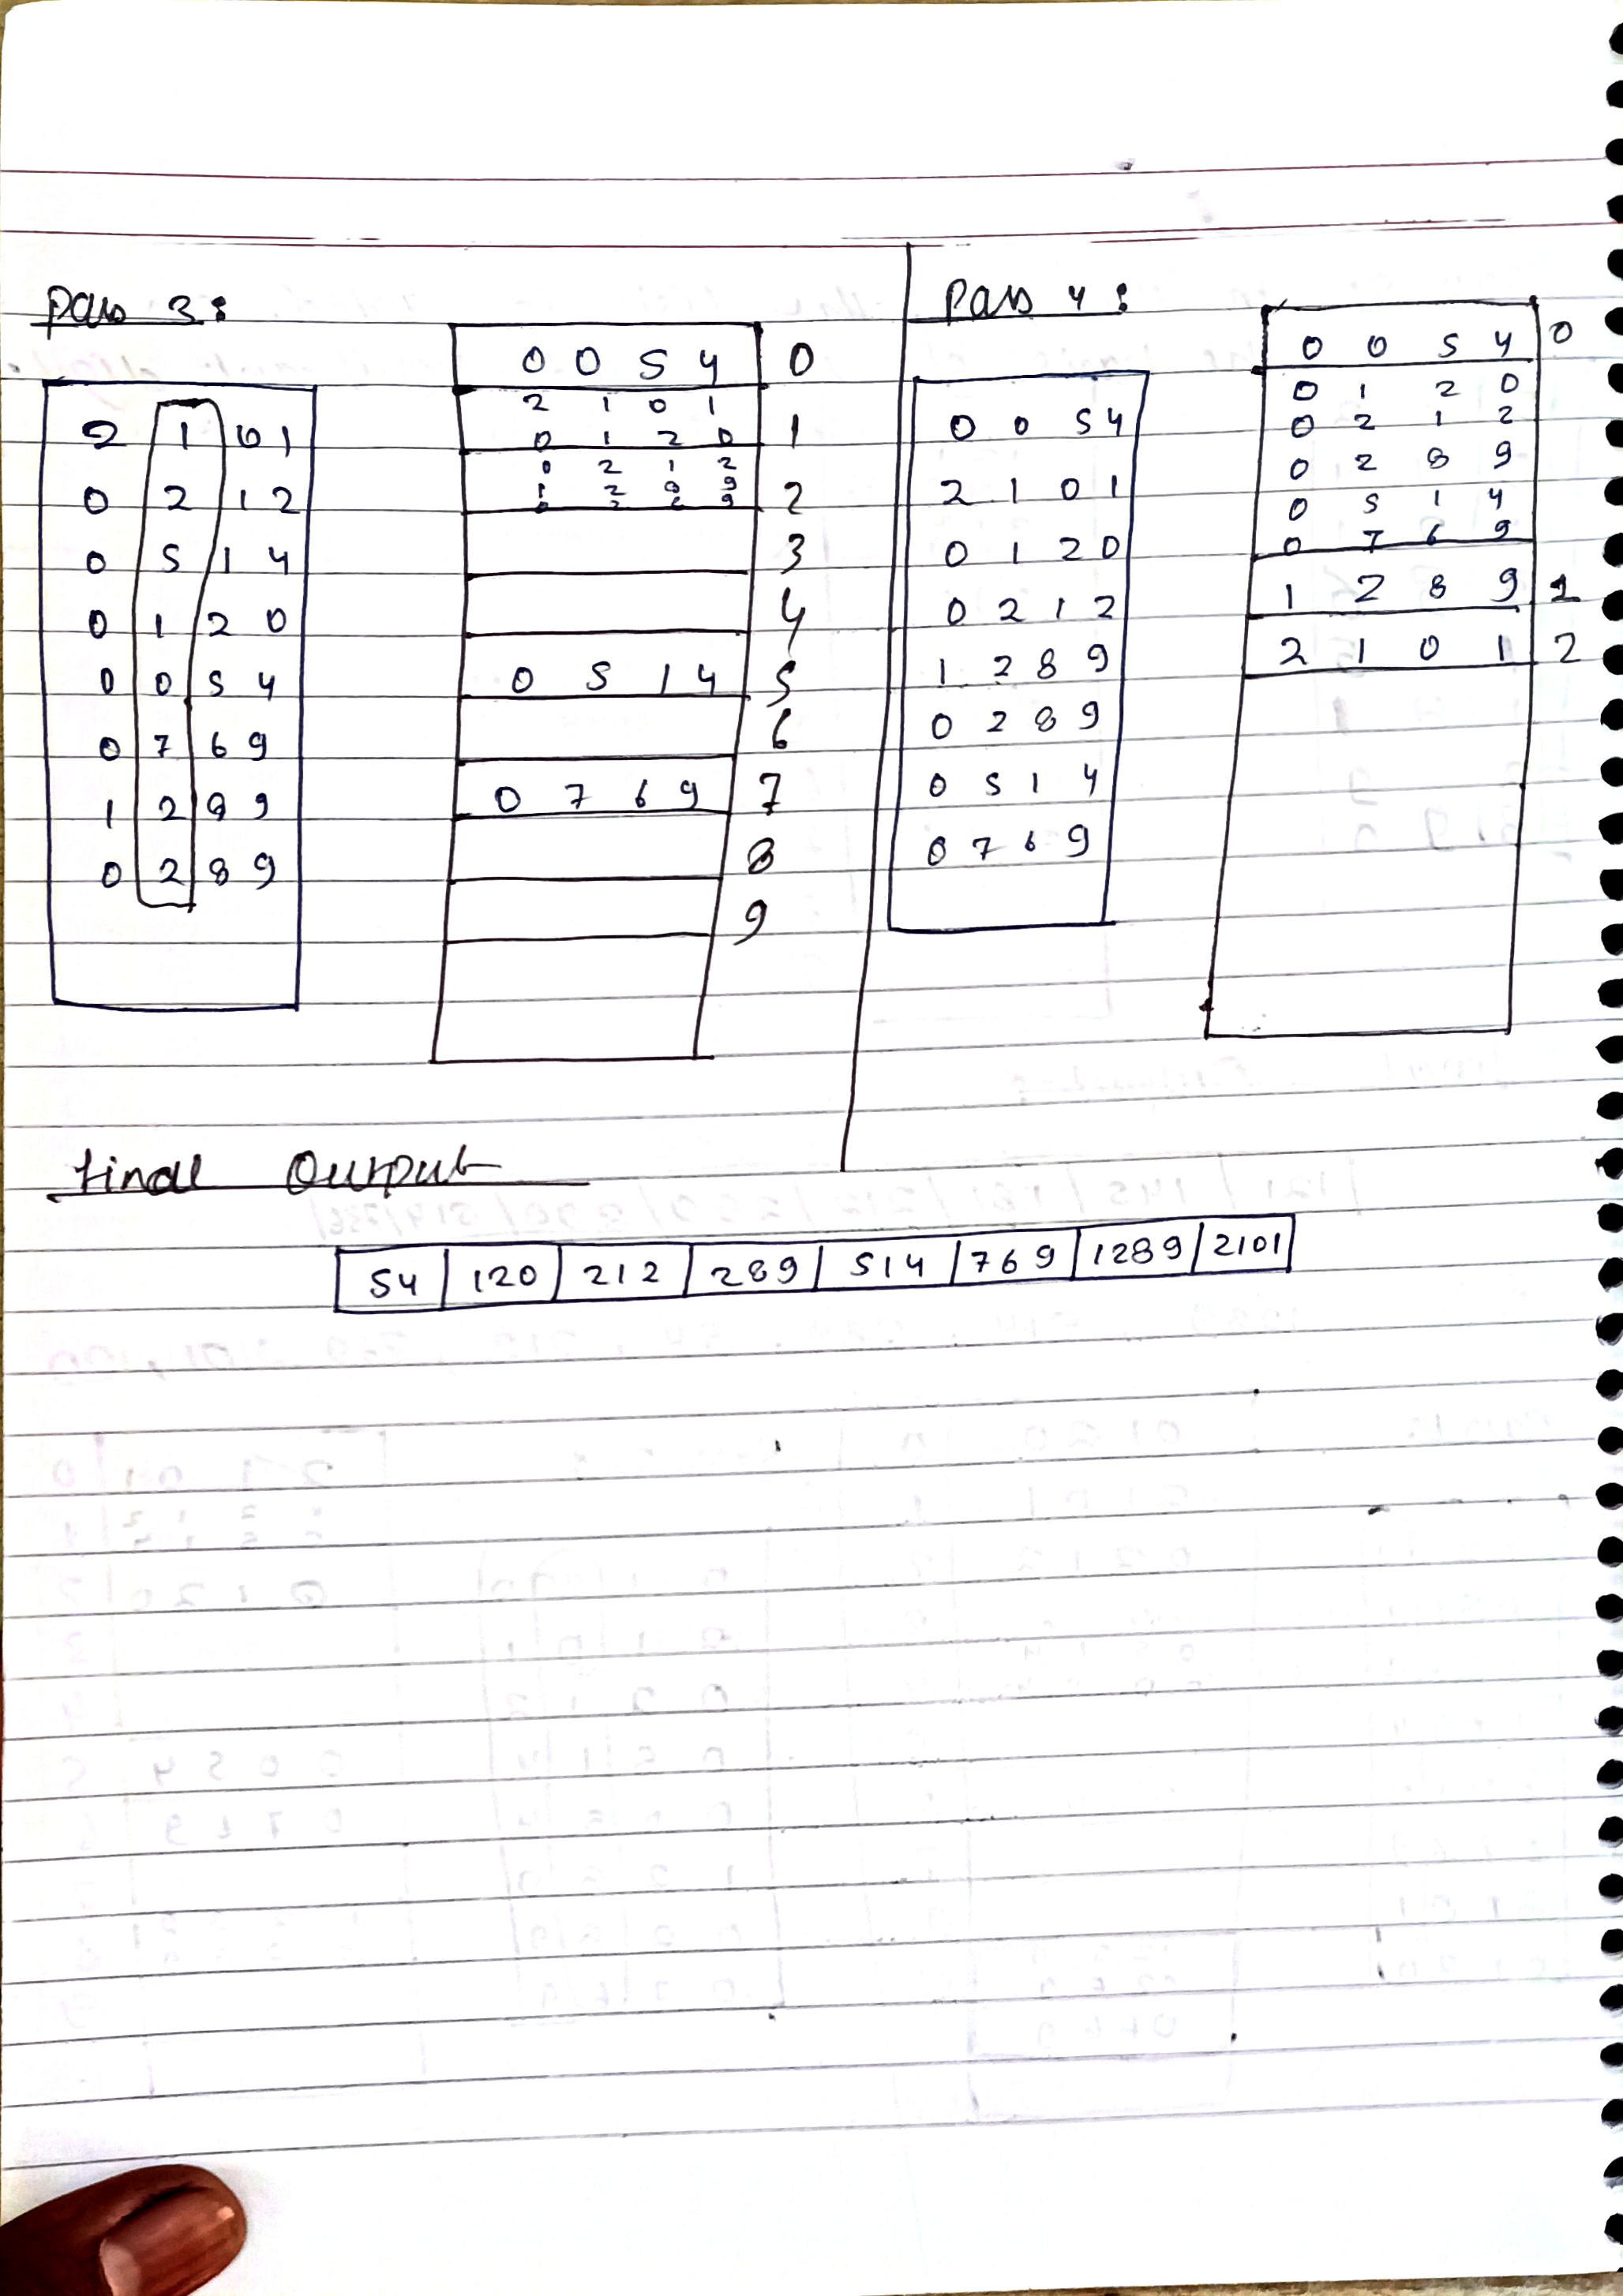 Pass 3:
2 1 0 1
0 2 1 2
0 5 1 4
0 1 2 0
0 0 5 4
0 7 6 9
1 2 8 9
0 2 8 9
0 0 5 4 0
2 1 0 1
0 1 2 0 1
0 2 1 2
1 2 8 9
2
3
4
0 5 1 4 5
6
0 7 6 9 7
8
9
Pass 4:
0 0 5 4
2 1 0 1
0 1 2 0
0 2 1 2
1 2 8 9
0 2 8 9
0 5 1 4
0 7 6 9
0 0 5 4 0
0 1 2 0
0 2 1 2
0 2 8 9
0 5 1 4
0 7 6 9
1 2 8 9 1
2 1 0 1 2
Final Output
54 120 212 289 514 769 1289 2101